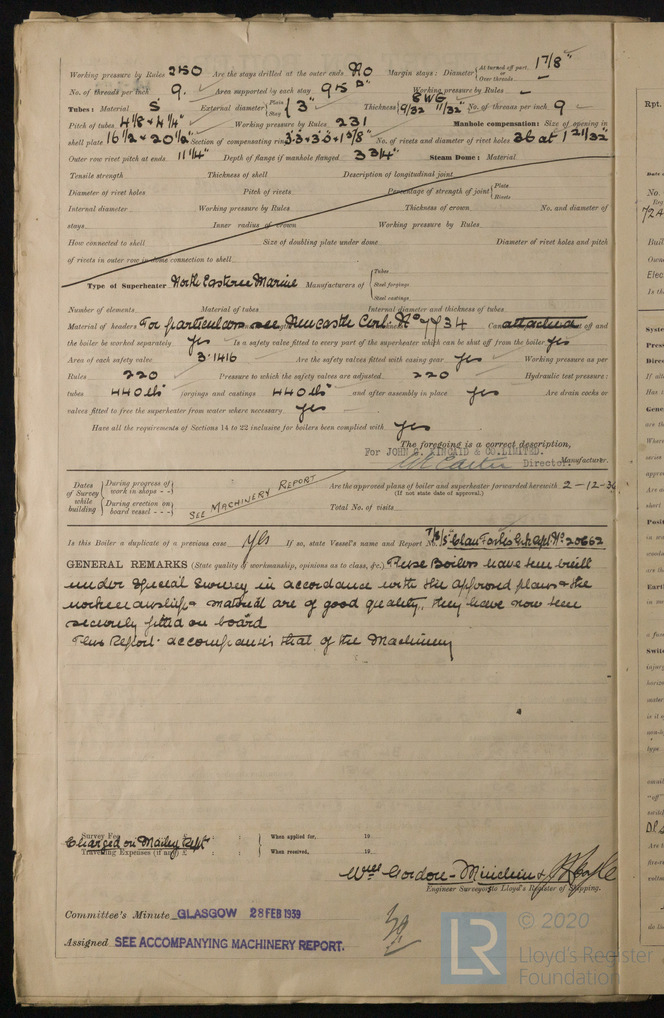 Working pressure by Rules 250 Are the stays drilled at the outer ends No Margin stays: Diameter { At turned off part, or Over threads 1 7/8" –
No. of threads per inch 9. Area supported by each stay 95 □" Working pressure by Rules –
Tubes: Material S External diameter { Plain Stay { 3" Thickness { 8 WG 9/32 11/32" No. of threads per inch 9
Pitch of tubes 4 1/8 & 4 1/4" Working pressure by Rules 231 Manhole compensation: Size of opening in
shell plate 16 1/2 × 20 1/2" Section of compensating ring 3'.3 × 3'.3 × 1 3/8" No. of rivets and diameter of rivet holes 36 at 1 21/32"
Outer row rivet pitch at ends 11 1/4" Depth of flange if manhole flanged 3 3/4" Steam Dome: Material
Tensile strength Thickness of shell Description of longitudinal joint
Diameter of rivet holes Pitch of rivets Percentage of strength of joint { Plate Rivets
Internal diameter Working pressure by Rules Thickness of crown No. and diameter of
stays Inner radius of crown Working pressure by Rules
How connected to shell Size of doubling plate under dome Diameter of rivet holes and pitch
of rivets in outer row in dome connection to shell
Type of Superheater North Eastern Marine Manufacturers of { Tubes Steel forgings Steel castings
Number of elements Material of tubes Internal diameter and thickness of tubes
Material of headers For particulars see Newcastle Cert. No 7734 Can attached off and
the boiler be worked separately yes Is a safety valve fitted to every part of the superheater which can be shut off from the boiler yes
Area of each safety valve 3.1416 Are the safety valves fitted with easing gear yes Working pressure as per
Rules 220 Pressure to which the safety valves are adjusted 220 Hydraulic test pressure:
tubes 440 lbs forgings and castings 440 lbs and after assembly in place yes Are drain cocks or
valves fitted to free the superheater from water where necessary yes
Have all the requirements of Sections 14 to 22 inclusive for boilers been complied with yes
The foregoing is a correct description,
For JOHN G. KINCAID & CO. LIMITED.
Director. Manufacturer.
Dates of Survey while building { During progress of work in shops - - } { During erection on board vessel - - - } SEE MACHINERY REPORT Are the approved plans of boiler and superheater forwarded herewith 2-12-36
(If not state date of approval.)
Total No. of visits
Is this Boiler a duplicate of a previous case Yes If so, state Vessel's name and Report No. Clan Forbes Gk Rpt No 20662
GENERAL REMARKS (State quality of workmanship, opinions as to class, &c.) These Boilers have been built
under special survey in accordance with the approved plans & the
workmanship & material are of good quality, they have now been
securely fitted on board
This Report accompanies that of the Machinery
Survey Fee
Charged on Machy Rept
Travelling Expenses (if any) £ : :
When applied for, 19
When received, 19
Wm Gordon-
Engineer Surveyor to Lloyd's Register of Shipping.
Committee's Minute GLASGOW 28 FEB 1939
Assigned SEE ACCOMPANYING MACHINERY REPORT.
LR © 2020
Lloyd's Register
Foundation
Rpt.